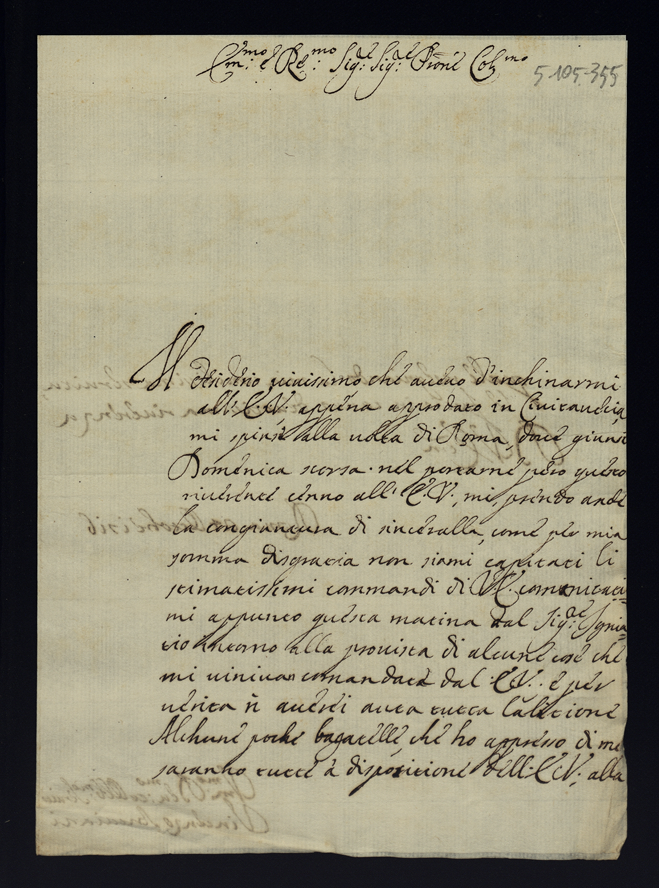 Em:mo e Re:mo Sig:re Sig:re Prone Col:mo
5-105-355
Il desiderio viuissimo che aueuo d'inchinarmi
all: E.V. appena approdato in Ciuitauechia,
mi spinse alla uolta di Roma, doue giunsi
Domenica scorsa. nel portarne però questo
riuerente cenno all' E.V., mi prendo anche
la congiuntura di sinceralla, come per mia
somma disgratia non siami capitati li
stimatissimi commandi di V.E. comunicati=
mi appunto questa matina dal Sig:re Igna=
tio intorno alla prouista di alcune cose che
mi uiniuan comandate dal E.V.: e per
uerita n auerei auta tutta l'aletione
Alchune poche bagatelle che ho appresso di me
saranno tutte à dispositione dell: E.V, alla